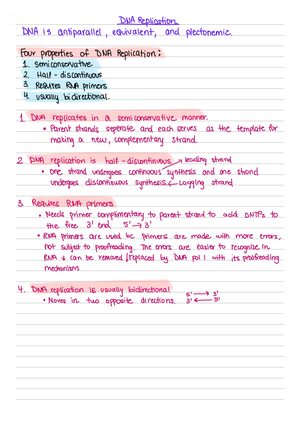 DNA Replication
DNA is antiparallel, equivalent, and plectonemic.
Four properties of DNA Replication:
1. Semiconservative
2. Half-discontinuous
3. Requires RNA primers
4. usually bidirectional.
1. DNA replicates in a semiconservative manner.
• Parent strands seperate and each serves as the template for
making a new, complementary strand.
2. DNA replication is half-discontinuous → leading strand
• one strand undergoes continuous synthesis and one strand
undergoes discontinuous synthesis → Lagging strand
3. Requires RNA primers
• Needs primer complimentary to parent strand to add dNTPs to
the free 3' end. 5' → 3'
• RNA primers are used bc primers are made with more errors,
not subject to proofreading. The errors are easier to recognize in
RNA & can be removed/replaced by DNA pol I with its proofreading
mechanism.
4. DNA replication is usually bidirectional
• Moves in two opposite directions. 5' → 3'
3' ← 5'